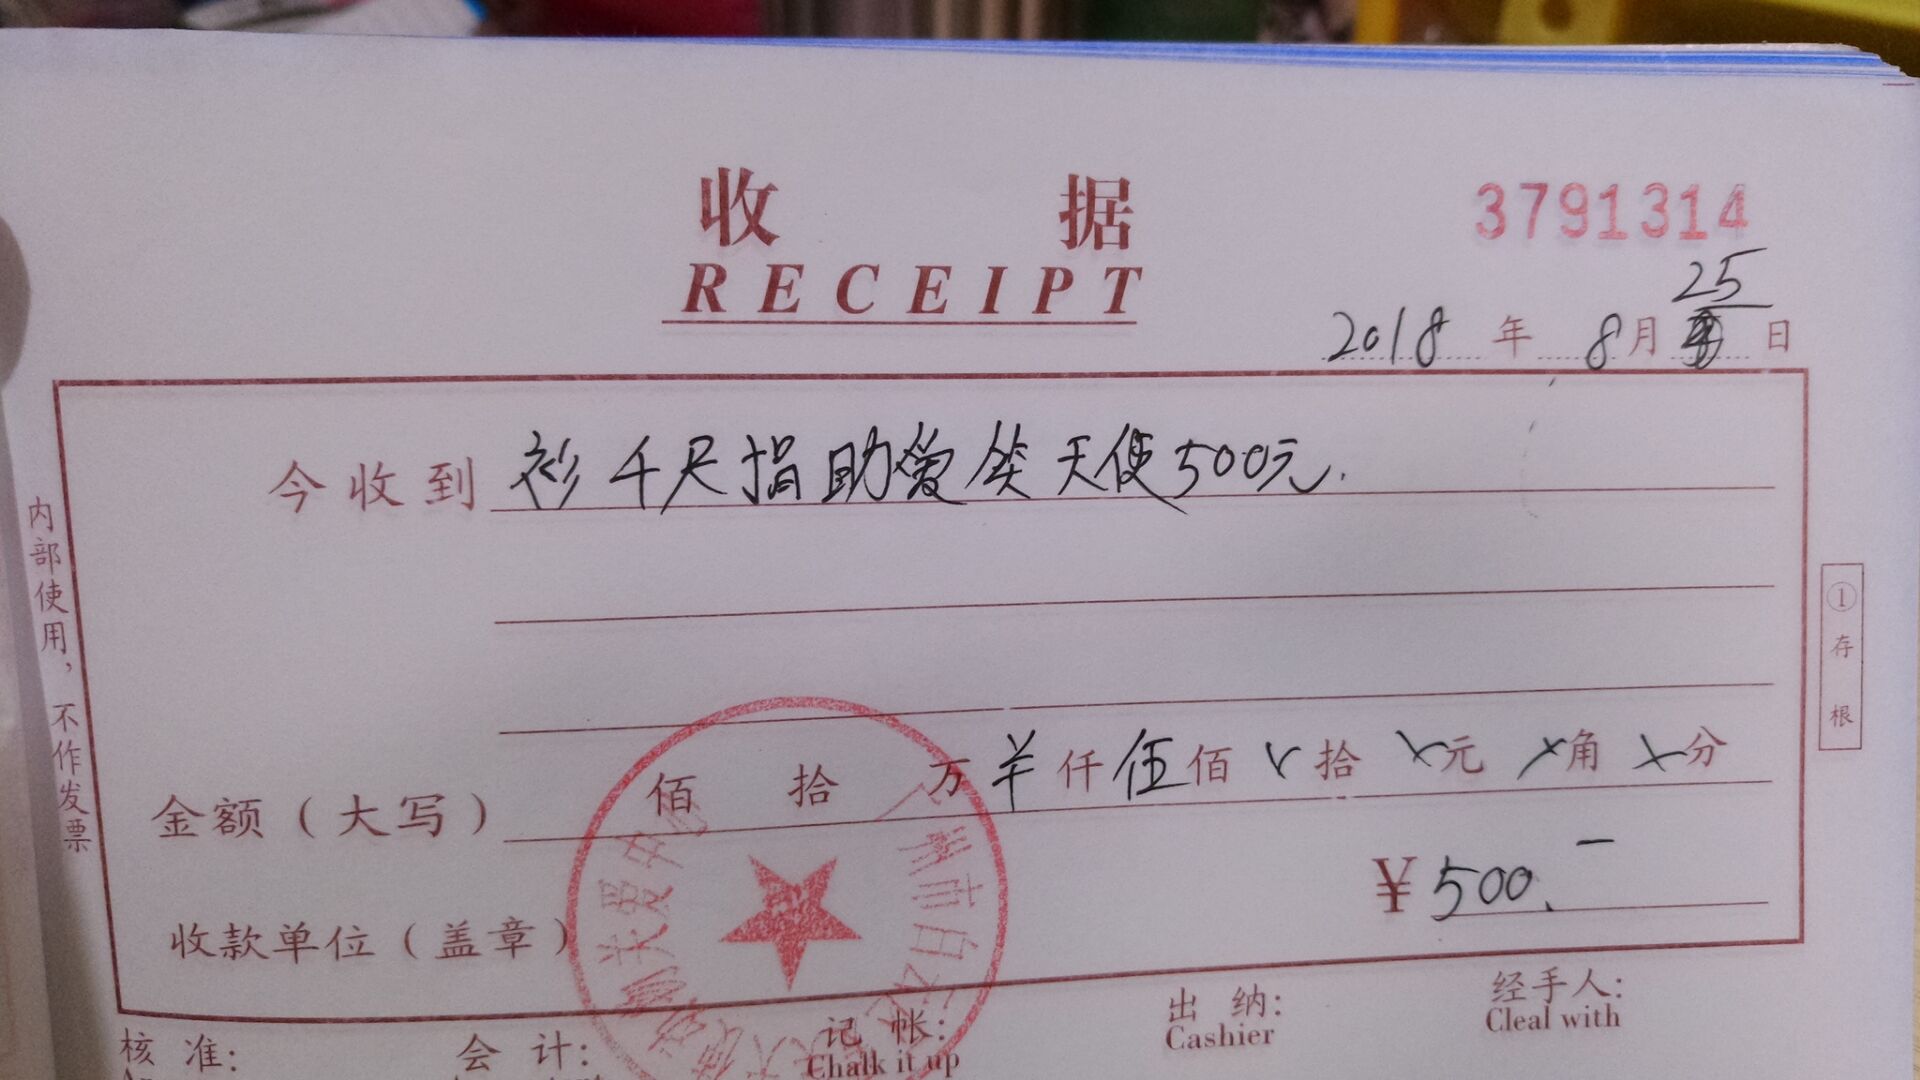 收 据
3791314
RECEIPT
25
2018 年 8月 日
今收到 衫千尺捐助爱笑天使500元.
内部使用，不作发票
① 存根
金额（大写） 佰 拾 万 羊 仟 伍 佰 拾 元 角 分
¥500.-
收款单位（盖章）
核 准: 会 计: 记 帐: 出 纳: 经手人:
Chalk it up Cashier Cleal with
州市白云 天使 关爱中